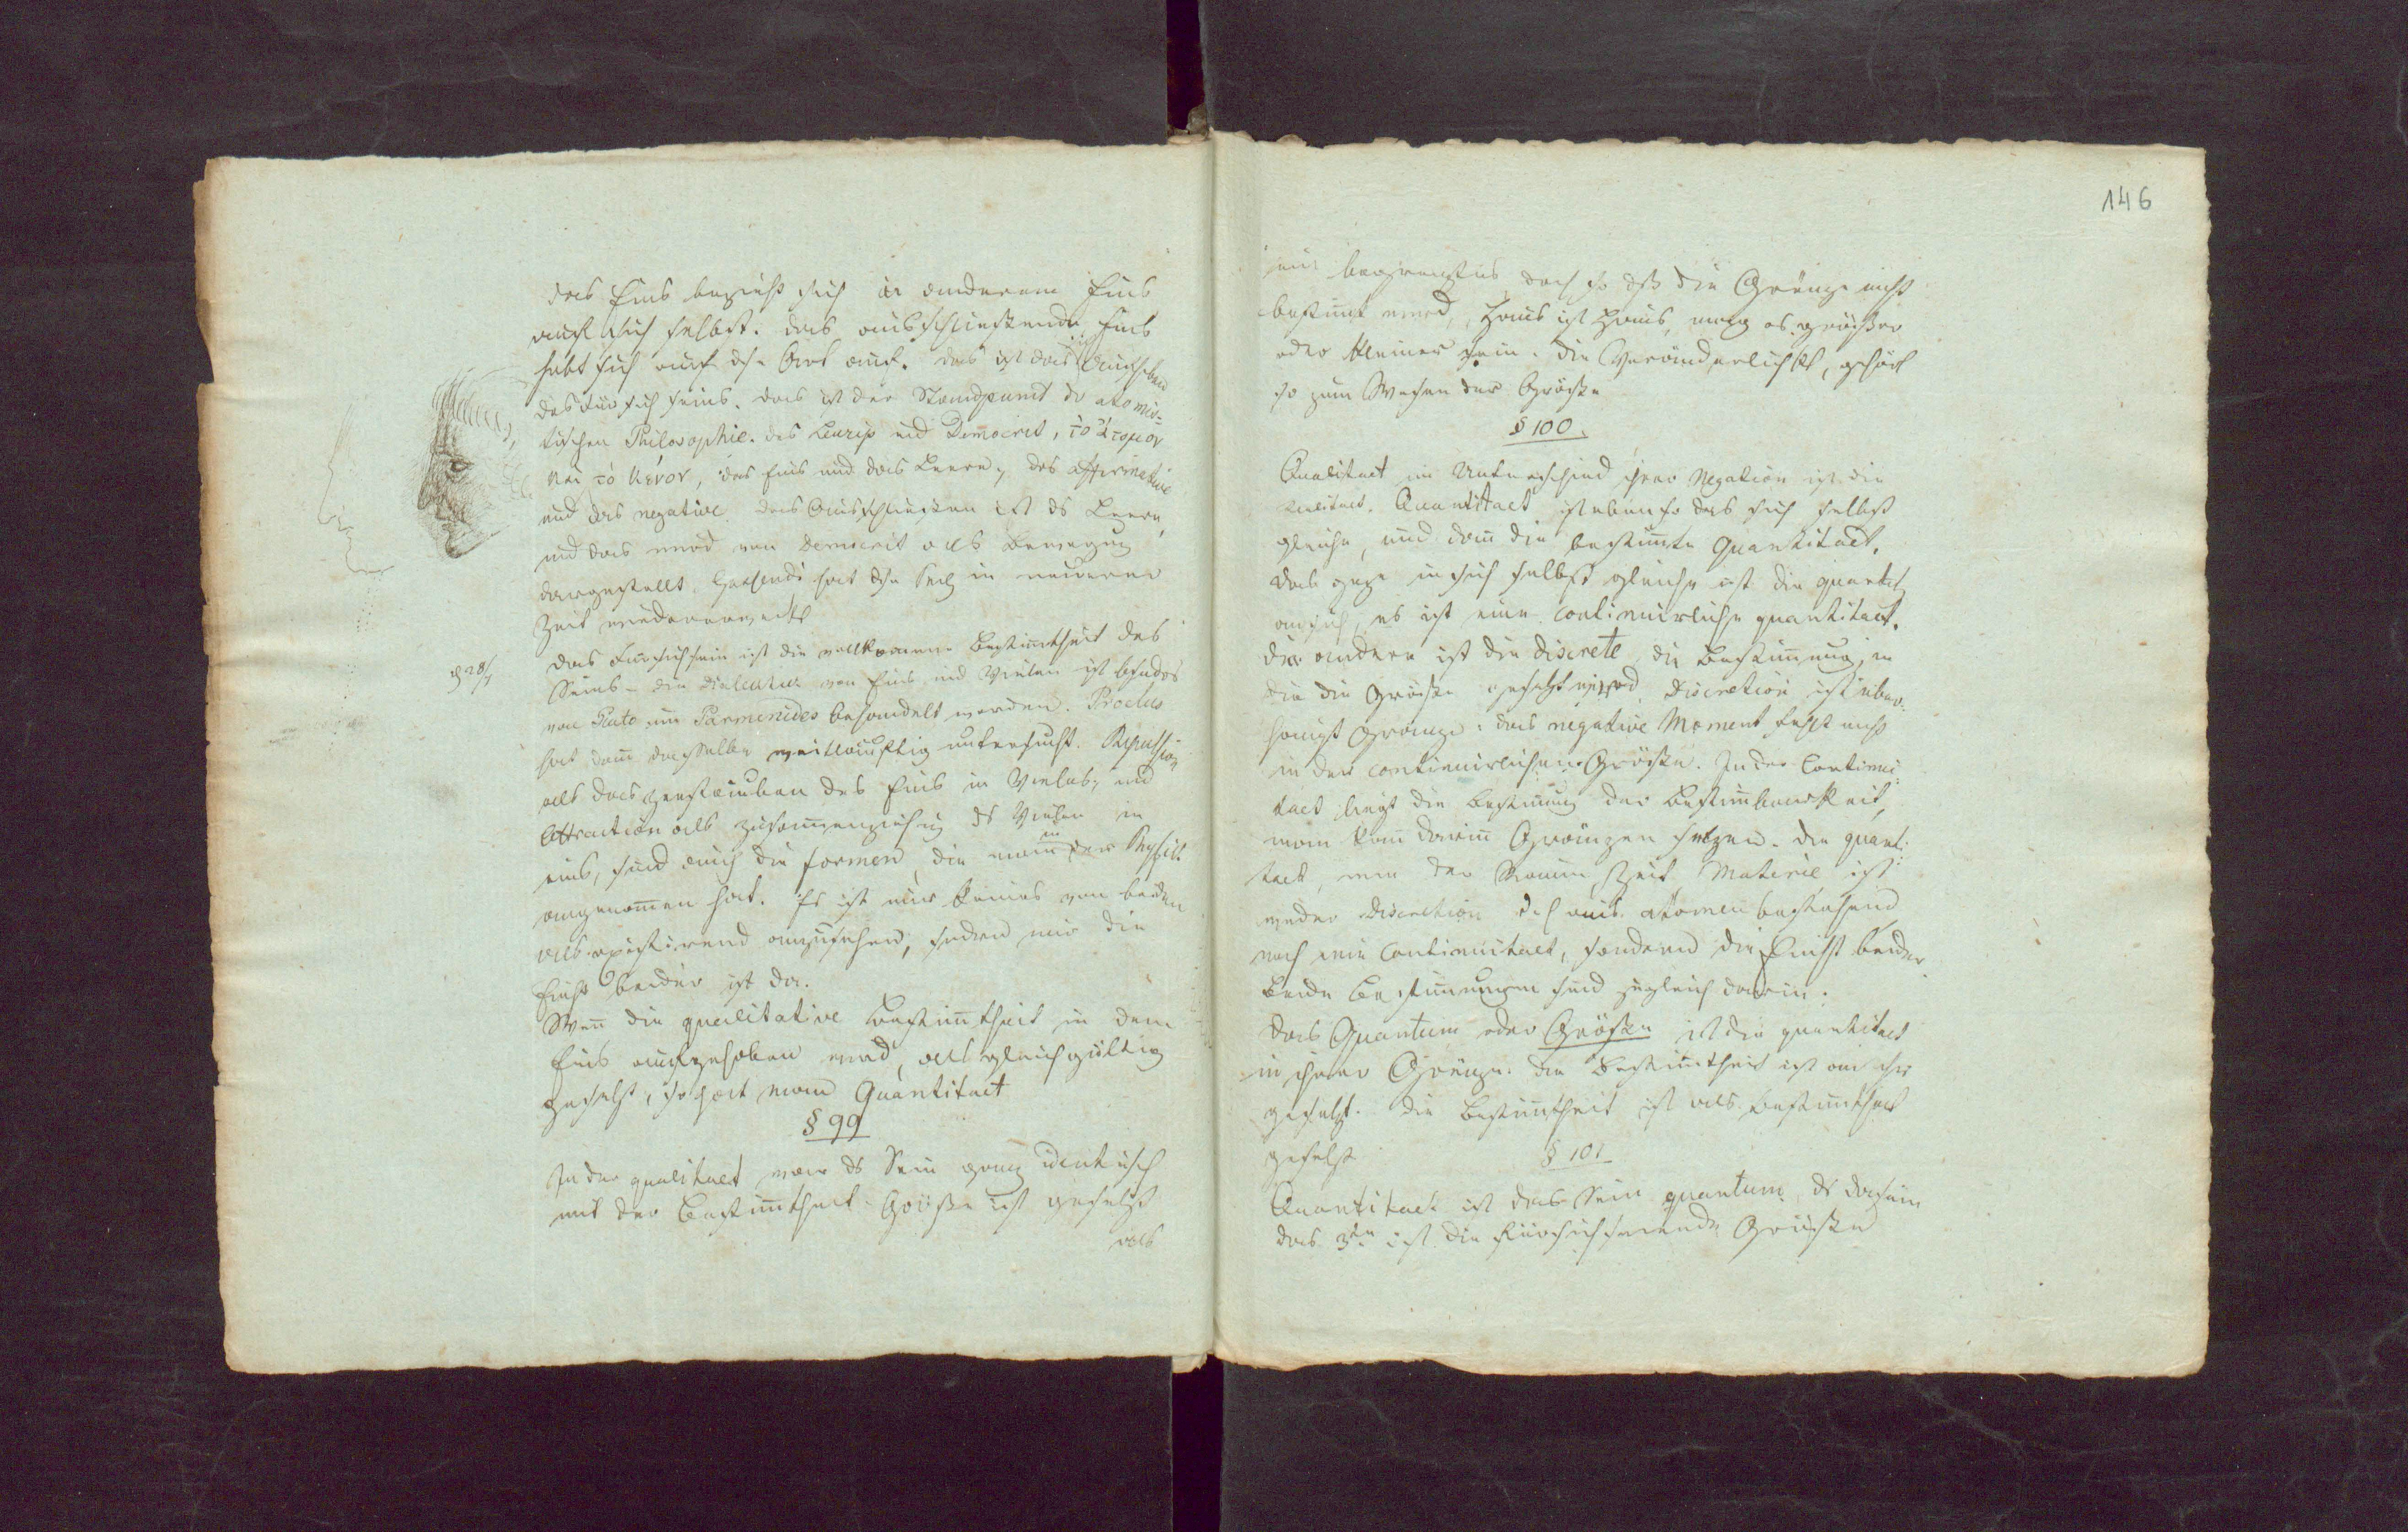 das Eins bezieht sich in anderem Eins
auf sich selbst. das ausschliessende Eins
hebt sich auf dse Art auf. das ist das Aufheben
des Fürsichseins. das ist der Standpunct der atomis-
tischen Philosophie. des Leucip und Democrit, τὸ ἄτομον
καὶ τὸ κένον, das Eins und das Leere, das affirmative
und das negative das Ausschliessen ist ds Leere,
und das wird von Democrit als Bewegung
dargestellt. Gassendi hat dse in neuerer
Zeit wiedererweckt
28/7
das Fürsichsein ist die vollkomene Bestimtheit des
Seins – die dialectik von Eins und Vielen ist bsonders
von Plato im Parmenides behandelt worden. Proclus
hat dann dasselbe weitläuftig untersucht. Repulsion
als das zerstäuben des Eins in Vieles, und
Attraction als zusammenziehung ds Vielen in
eins, sind auch die formen, die man in der Physik
angenomen hat. Es ist nur keines von beiden
als existirend anzusehen, sondern nur die
Einht beider ist da.
Wen die qualitative Bestimtheit in dem
Eins aufgehoben wird, als gleichgültig
gesetzt, so hat man Quantitaet
§ 99
In der qualitaet war ds Sein ganz identisch
mit der Bestimtheit. Größe ist gesetzt
als
146
ein begrenztes, doch so dß die Gränze nicht
bestimt wird, Haus ist Haus, mag es größer
oder kleiner sein. die Veränderlichkt, gehört
so zum Wesen der Größe
§ 100.
Qualitaet im Unterschied ihrer Negation ist die
Realitaet. Quantitaet ist ebenso das sich selbst
gleiche, und dann die bestimte Quantitaet.
das ganz in sich selbst gleiche ist die quantit
an sich, es ist eine continuirliche quantitaet.
die andere ist die discrete, die Bestimung, in
die die Größe gesetzt wird Discretion ist über-
haupt Gränze: das negative Moment fehlt nicht
in der continuirlichen Größe. In der Continui-
taet liegt die Bestimung der Bestimbarkeit,
man kan darin Gränzen setzen. die quanti-
taet, wie der Raum, Zeit Materie ist
weder Discretion d. h. aus atomen bestehend
noch reine Continuitaet, sondern die Einht beider
Beide Bestimungen sind zugleich darin.
das Quantum oder Größe ist die quantitaet
in ihrer Gränze. die Bestimtheit ist an ihr
gesetzt. die Bestimtheit ist als Bestimtheit
gesetzt
§ 101
Quantitaet ist das Sein quantum ds dasein
das 3te ist die fürsichseiende Größe